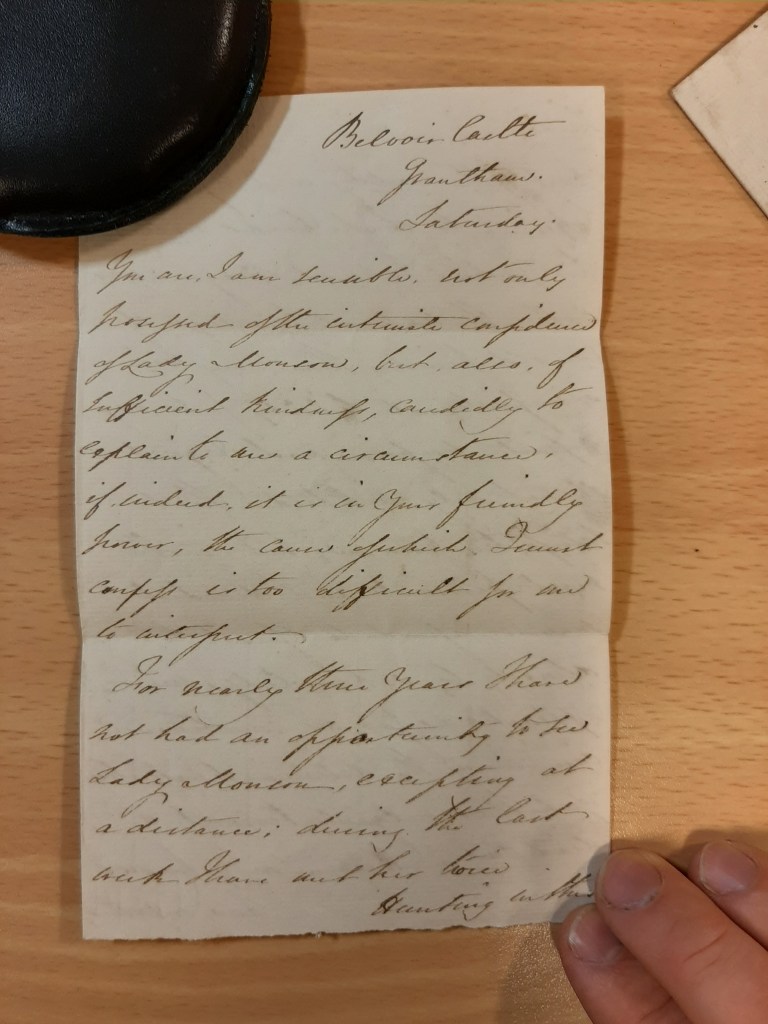 Belvoir Castle
Grantham.
Saturday.
You are, I am sensible, not only
possessed of the intimate confidence
of Lady Monson, but, also, of
sufficient kindness, candidly to
explain to me a circumstance,
if, indeed, it is in Your friendly
power, the cause of which, I must
confess is too difficult for me
to interpret.
For nearly three Years I have
not had an opportunity to see
Lady Monson, excepting at
a distance; during the last
week I have met her twice
Hunting in this